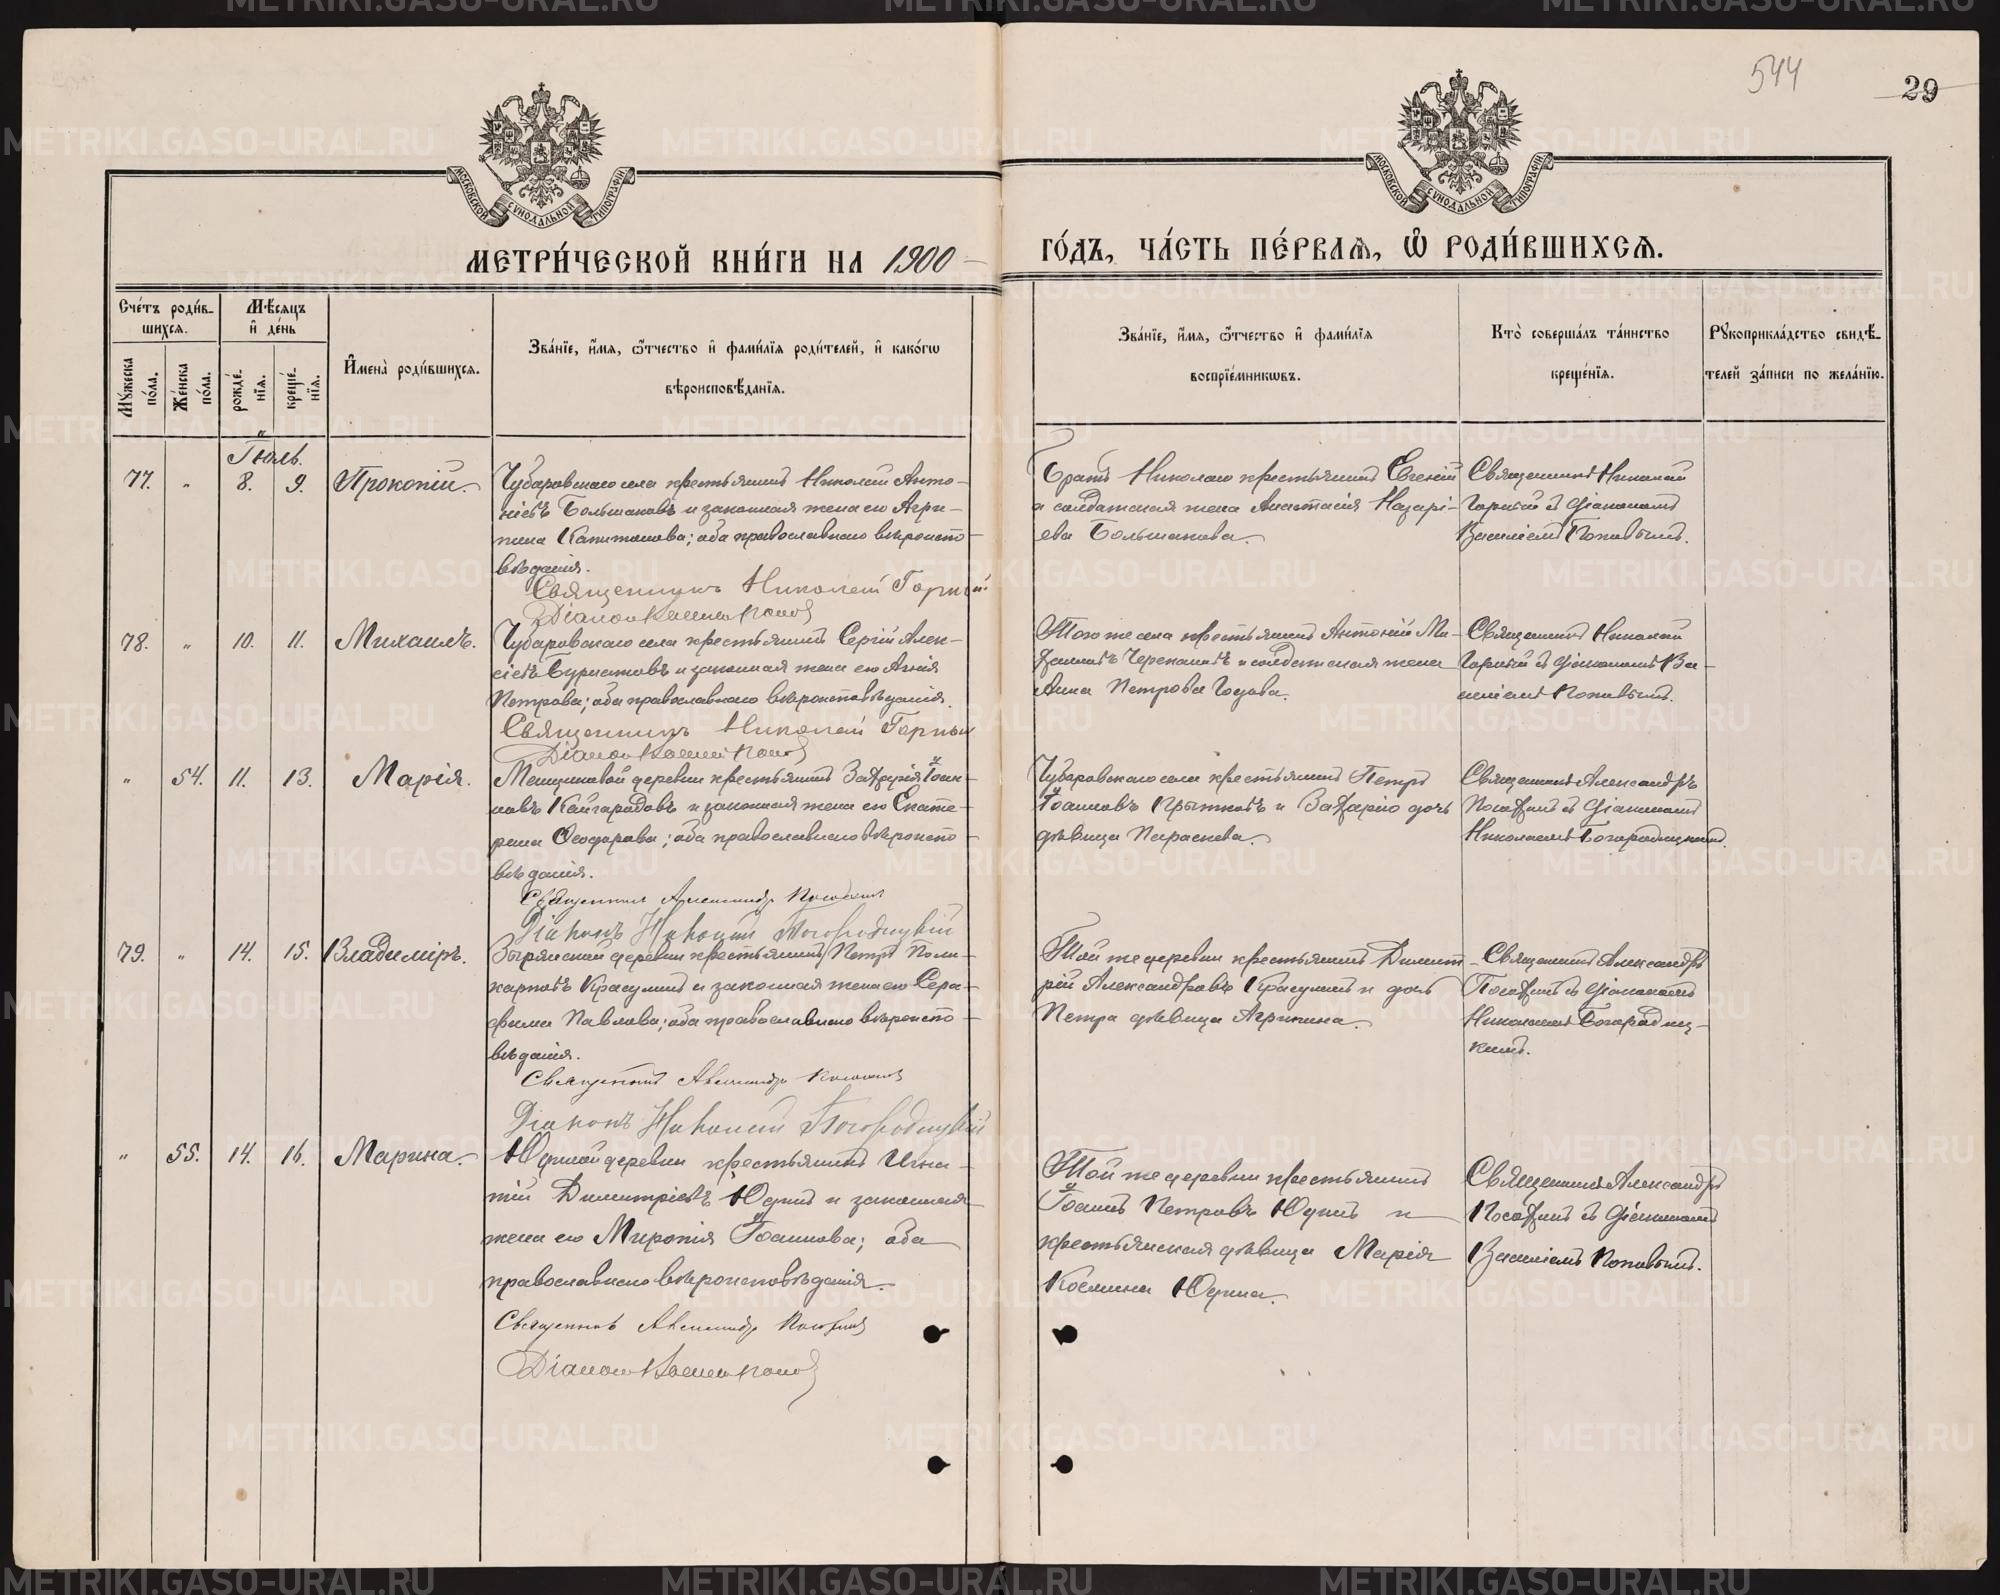 544
29
МОСКОВСКОЙ СѴНОДАЛЬНОЙ ТИПОГРАФІИ
МОСКОВСКОЙ СѴНОДАЛЬНОЙ ТИПОГРАФІИ
МЕТРИ́ЧЕСКОЙ КНИ́ГИ НА 1900
ГО́ДЪ, ЧА́СТЬ ПЕ́РВАѦ, Ѽ РОДИ́ВШИХСѦ.
Сче́тъ роди́в-
шихсѧ.
Мꙋжеска по́ла.
Же́нска по́ла.
Мѣсѧцъ
и҆ де́нь
рожде́-
нїѧ.
креще́-
нїѧ.
И҆мена̀ роди́вшихсѧ.
Зва́нїе, и҆́мѧ, ѻ҆́тчество и҆ фами́лїѧ роди́телей, и҆ како́гѡ
вѣроисповѣ́данїѧ.
Зва́нїе, и҆́мѧ, ѻ҆́тчество и҆ фами́лїѧ
воспрїе́мникѡвъ.
Кто̀ соверша́лъ та́инство
креще́нїѧ.
Рꙋкоприкла́дство свидѣ́-
телей за́писи по жела́нїю.
Іюль.
77. „ 8. 9. Прокопій.
Чубаровскаго села крестьянинъ Николай Анто-
ніевъ Большаковъ и законная жена его Агри-
пина Капитонова; оба православнаго вѣроиспо-
вѣданія.
Священникъ Николай Горный
Діаконъ Василій Поповъ
Братъ Николаю крестьянинъ Евгеній
и солдатская жена Анастасія Назарі-
ева Большакова.
Священникъ Николай
Горный съ діакономъ
Василіемъ Поповымъ.
78. „ 10. 11. Михаилъ.
Чубаровскаго села крестьянинъ Сергій Алек-
сіевъ и законная жена его
Петрова; оба православнаго вѣроисповѣданія.
Священникъ Николай Горный
Діаконъ Василій Поповъ
Того же села крестьянинъ Антоній Ми-
хаиловъ Черепановъ и солдатская жена
Анна Петрова
Священникъ Николай
Горный съ діакономъ Ва-
силіемъ Поповымъ.
„ 54. 11. 13. Марія.
деревни крестьянинъ Захарія Іоан-
новъ Кайгородовъ и законная жена его Екате-
рина Ѳеодорова; оба православнаго вѣроиспо-
вѣданія.
Священникъ Александръ Посохинъ
Діаконъ Николай Богородицкій
Чубаровскаго села крестьянинъ Петръ
Іоанновъ и Захарію дочь
дѣвица Параскева.
Священникъ Александръ
Посохинъ съ діакономъ
Николаемъ Богородицкимъ.
79. „ 14. 15. Владиміръ.
Зырянской деревни крестьянинъ Петръ Поли-
карповъ Красулинъ и законная жена его Сера-
фима Павлова; оба православнаго вѣроиспо-
вѣданія.
Священникъ Александръ Посохинъ
Діаконъ Николай Богородицкій
Той же деревни крестьянинъ Димит-
рій Александровъ Красулинъ и дочь
Петра дѣвица Агрипина.
Священникъ Александръ
Посохинъ съ діакономъ
Николаемъ Богородиц-
кимъ.
„ 55. 14. 16. Марина.
Юдиной деревни крестьянинъ Игна-
тій Димитріевъ Юдинъ и законная
жена его Миропія Іоаннова; оба
православнаго вѣроисповѣданія.
Священникъ Александръ Посохинъ
Діаконъ Василій Поповъ
Той же деревни крестьянинъ
Іоаннъ Петровъ Юдинъ и
крестьянская дѣвица Марія
Космина Юдина.
Священникъ Александръ
Посохинъ съ діакономъ
Василіемъ Поповымъ.
METRIKI.GASO-URAL.RU